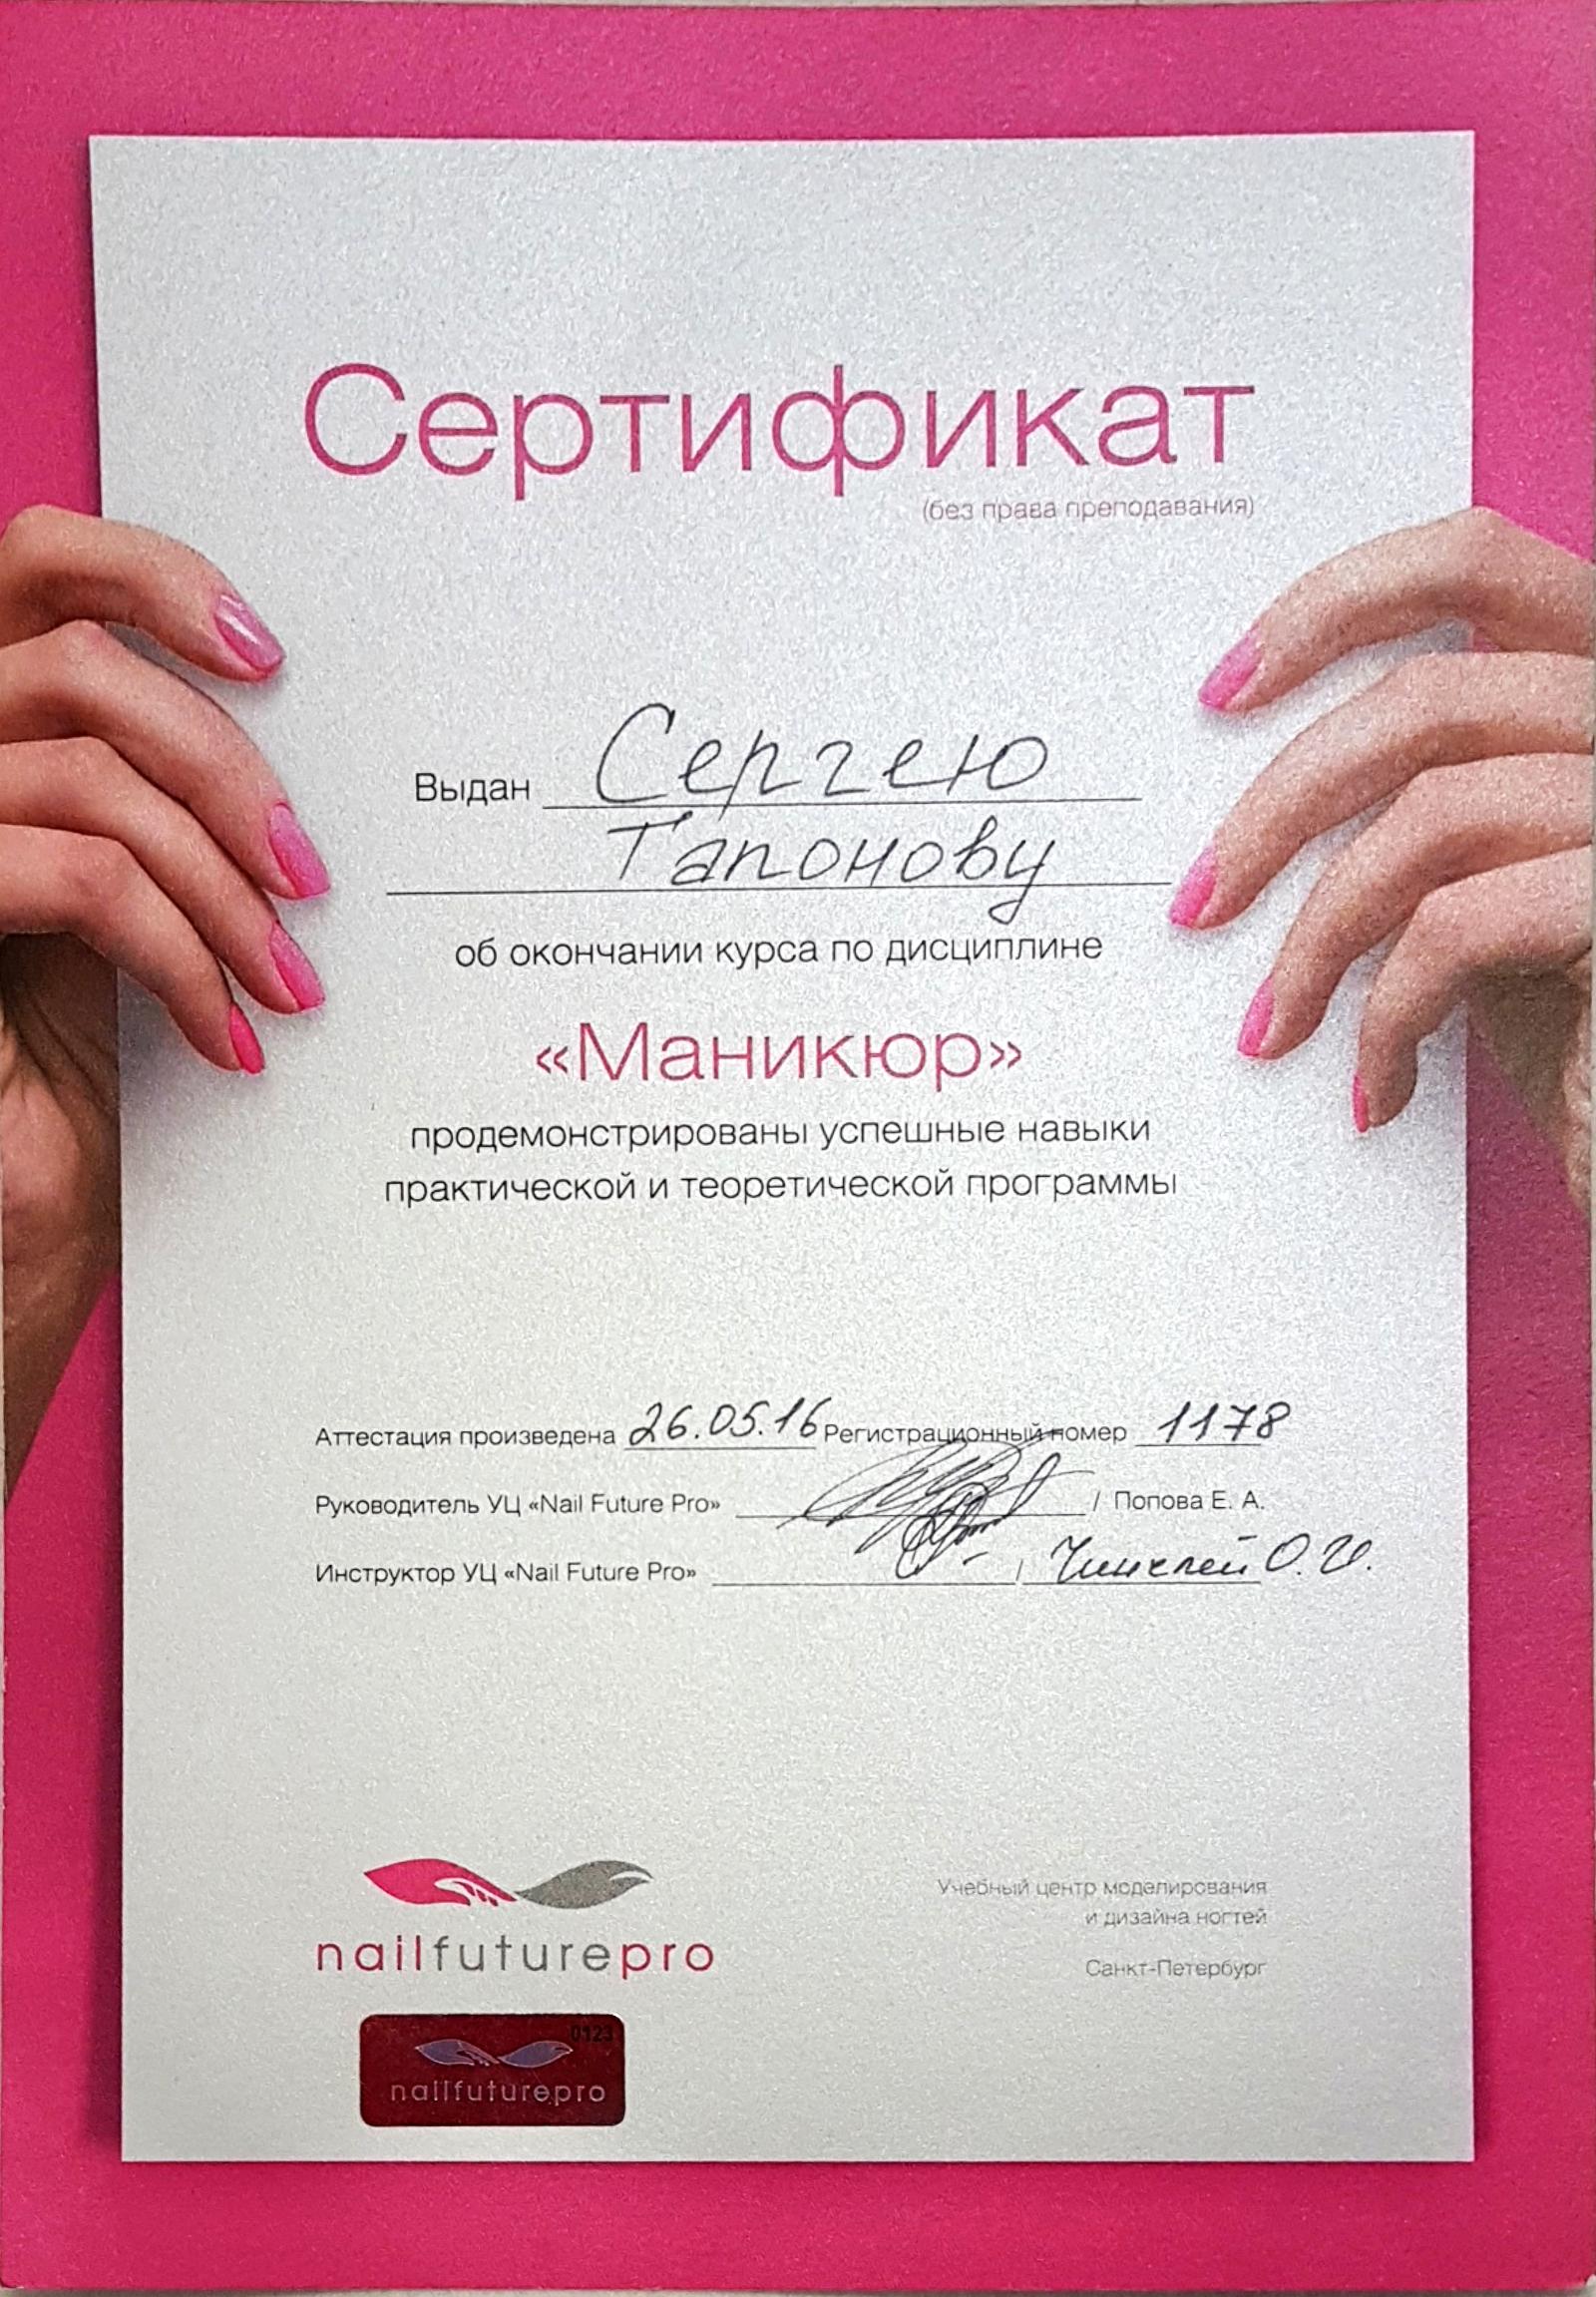 Сертификат
(без права преподавания)
Выдан Сергею
Тапонову
об окончании курса по дисциплине
«Маникюр»
продемонстрированы успешные навыки
практической и теоретической программы
Аттестация произведена 26.05.16 Регистрационный номер 1178
Руководитель УЦ «Nail Future Pro» / Попова Е. А.
Инструктор УЦ «Nail Future Pro» / О. И.
nailfuturepro
Учебный центр моделирования
и дизайна ногтей
Санкт-Петербург
0123
nailfuturepro